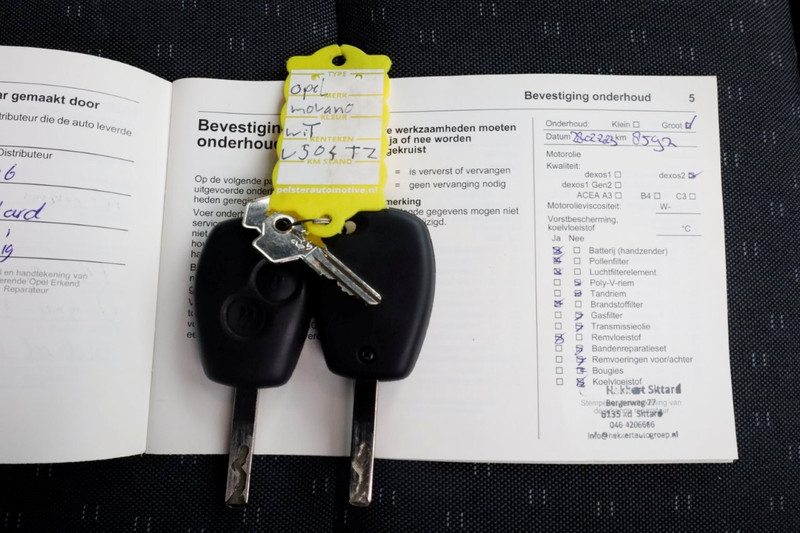 ar gemaakt door
tributeur die de auto leverde
Distributeur
6
ard
l en handtekening van
erende Opel Erkend
Reparateur
TYPE
opel
MERK
movano
KLEUR
wit
KENTEKEN
V504TZ
KM STAND
pelsterautomotive.nl
Bevestigin
onderhou
e werkzaamheden moeten
ja of nee worden
gekruist
Op de volgende p
uitgevoerde onderh
heden geregis
Voer onder
servic
niet
= is ververst of vervangen
= geen vervanging nodig
merking
ode gegevens mogen niet
ijzigd.
Bevestiging onderhoud 5
Onderhoud: Klein Groot
Datum km 8592
Motorolie
Kwaliteit:
dexos1 dexos2
dexos1 Gen2
ACEA A3 B4 C3
Motorolieviscositeit: W-
Vorstbescherming,
koelvloeistof °C
Ja Nee
Batterij (handzender)
Pollenfilter
Luchtfilterelement
Poly-V-riem
Tandriem
Brandstoffilter
Gasfilter
Transmissieolie
Remvloeistof
Bandenreparatieset
Remvoeringen voor/achter
Bougies
Koelvloeistof
Sittard
Bergerweg 77
6135 Kd Sittard
046-4206666
info@hekkertautogroep.nl